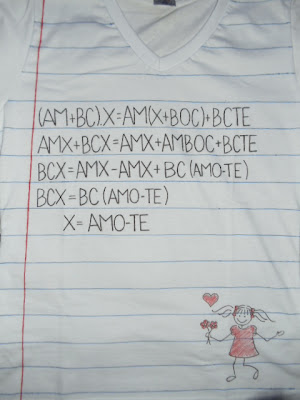 (AM+BC)X=AM(X+BOC)+BCTE
AMX+BCX=AMX+AMBOC+BCTE
BCX=AMX-AMX+BC(AMO-TE)
BCX=BC(AMO-TE)
X=AMO-TE